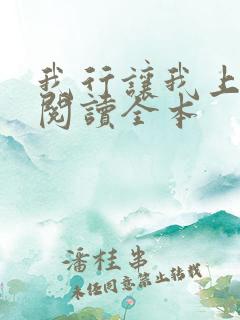 我行讓我上
閱讀全本
潘桂串
未經同意禁止轉載